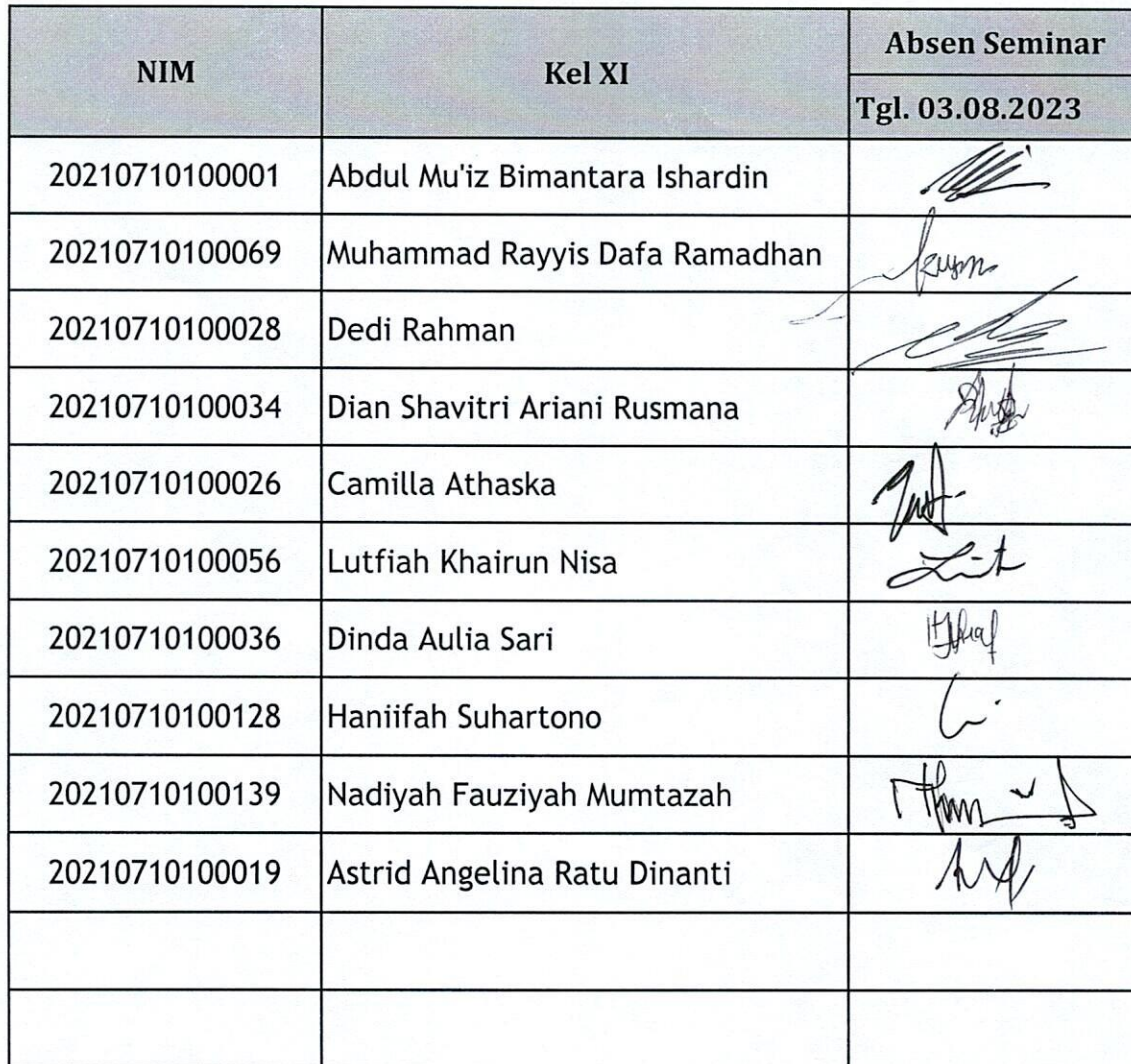 NIM Kel XI Absen Seminar
Tgl. 03.08.2023
20210710100001 Abdul Mu'iz Bimantara Ishardin
20210710100069 Muhammad Rayyis Dafa Ramadhan
20210710100028 Dedi Rahman
20210710100034 Dian Shavitri Ariani Rusmana
20210710100026 Camilla Athaska
20210710100056 Lutfiah Khairun Nisa
20210710100036 Dinda Aulia Sari
20210710100128 Haniifah Suhartono
20210710100139 Nadiyah Fauziyah Mumtazah
20210710100019 Astrid Angelina Ratu Dinanti